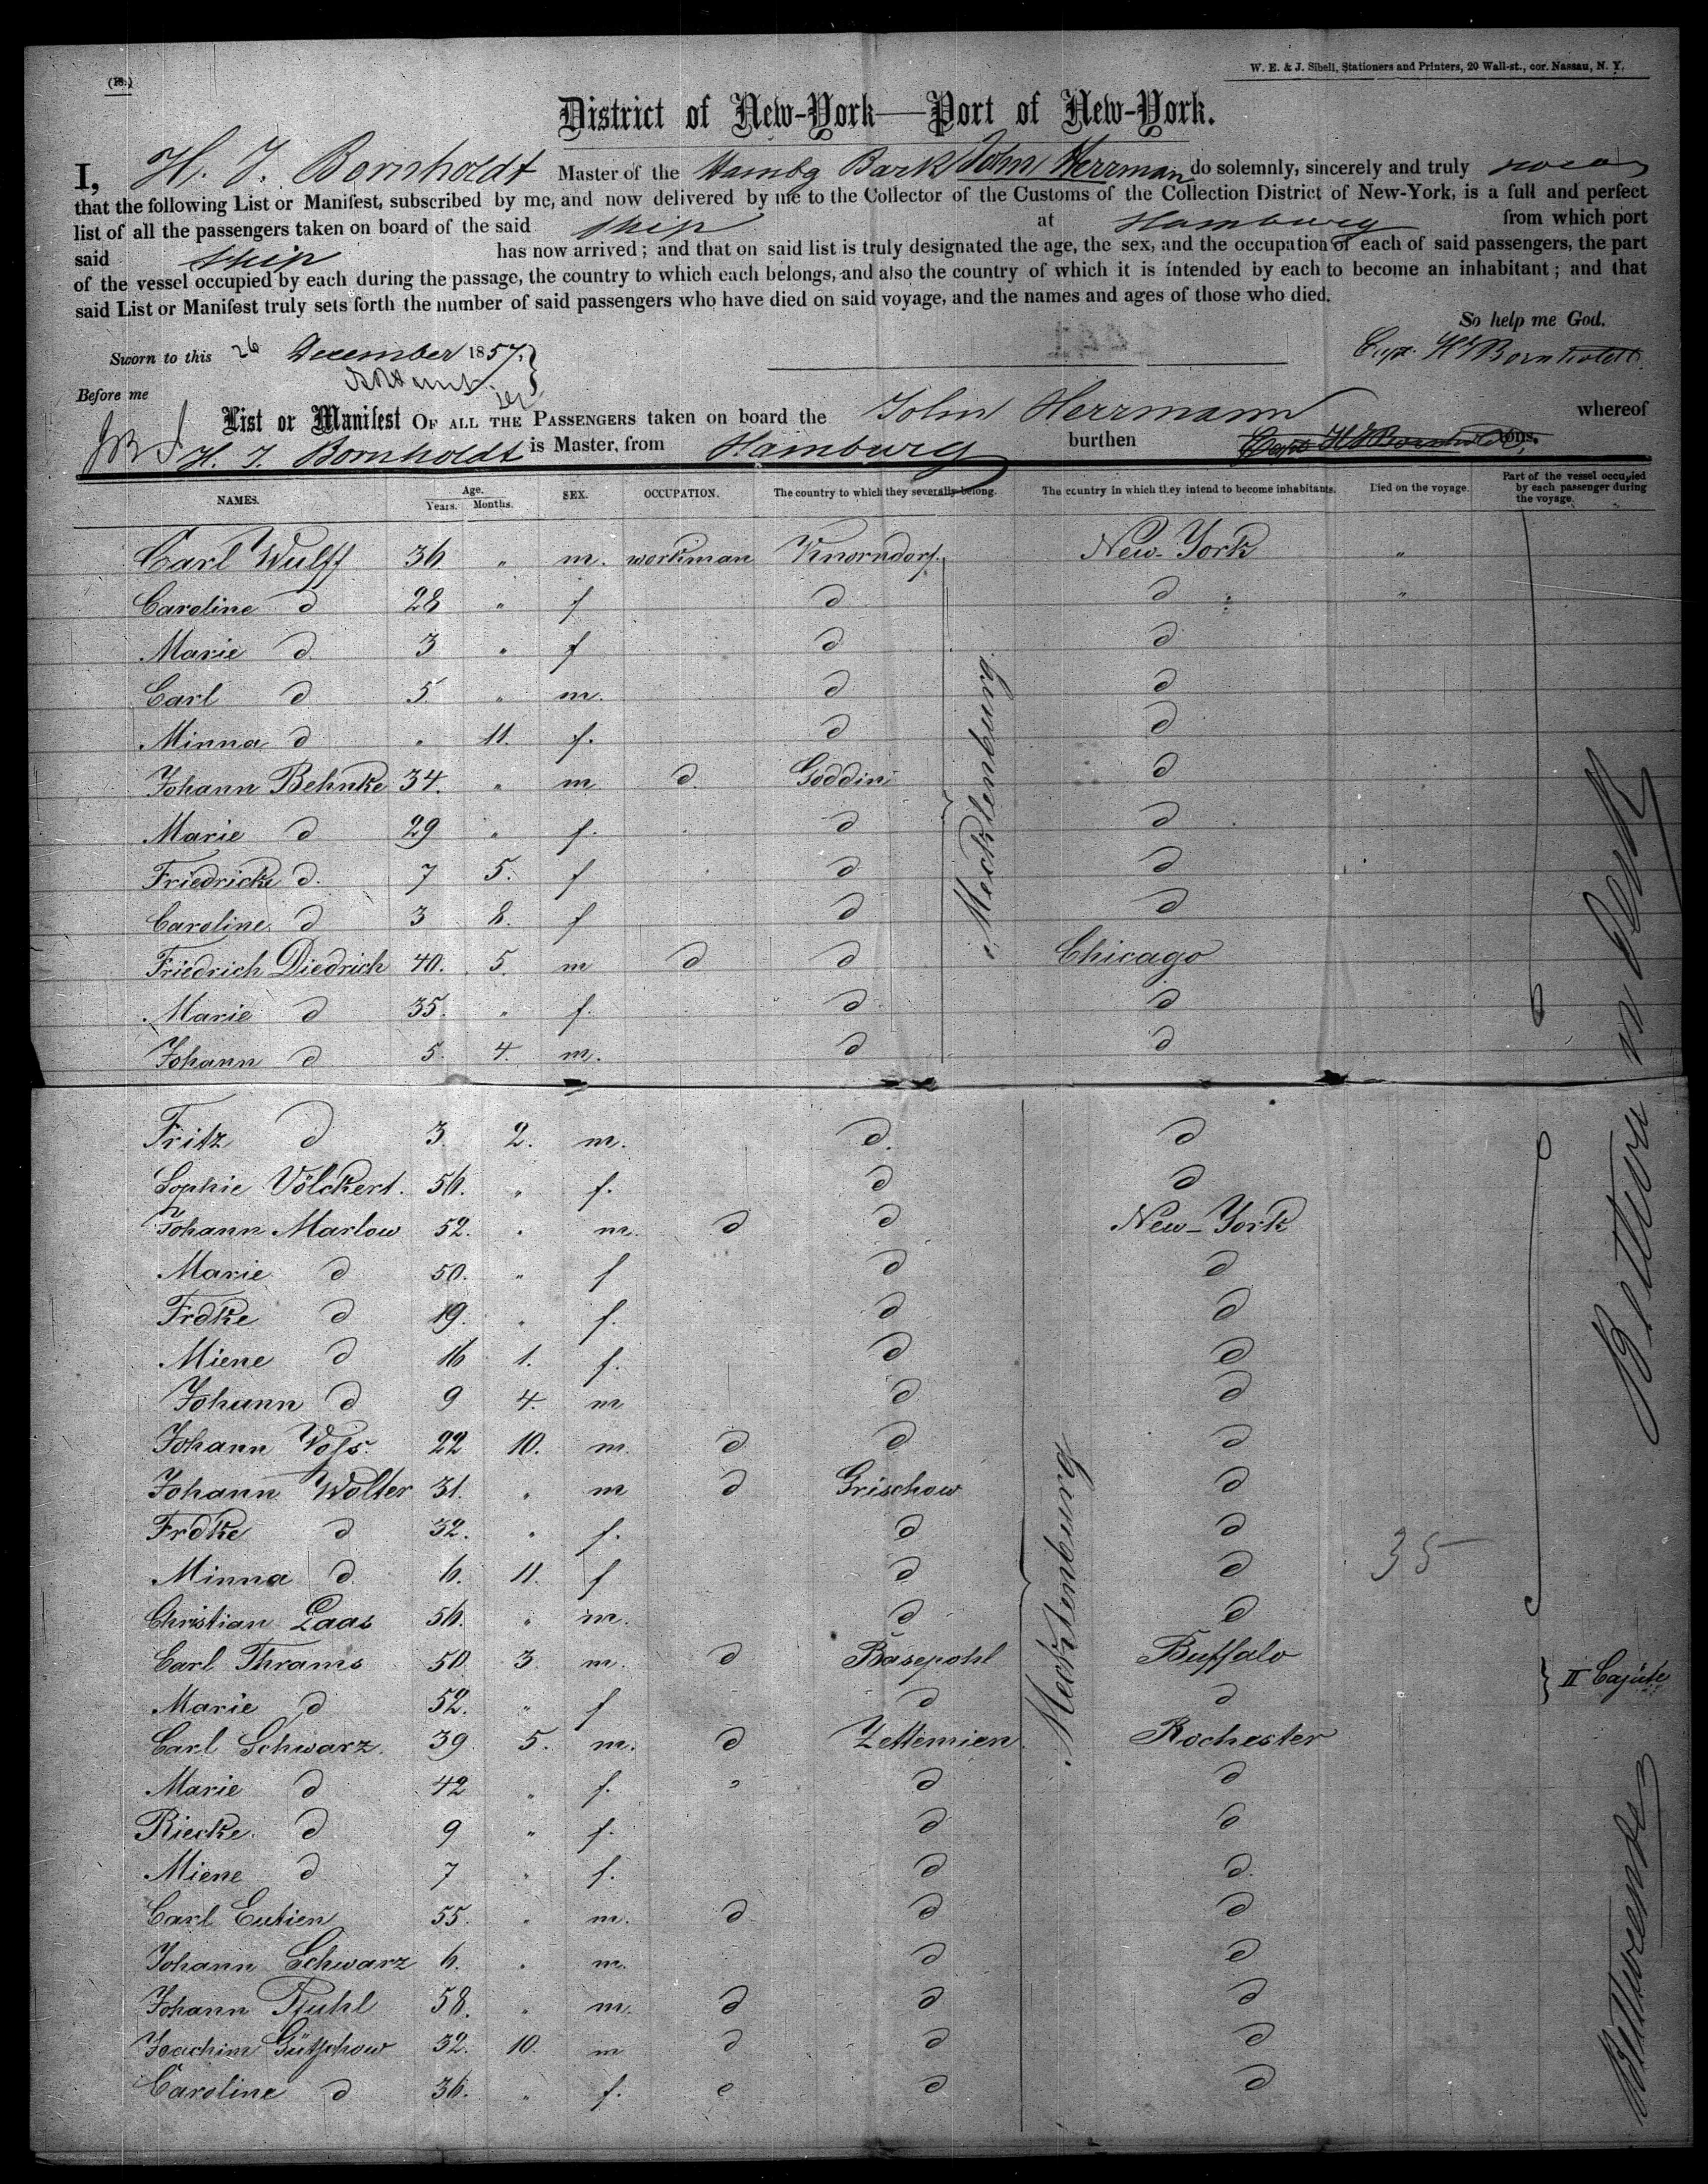 (18.)
W. E. & J. Sibell, Stationers and Printers, 20 Wall-st., cor. Nassau, N. Y.
District of New-York—Port of New-York.
I, H. J. Bornholdt Master of the Hambg Bark John Herrman do solemnly, sincerely and truly
that the following List or Manifest, subscribed by me, and now delivered by me to the Collector of the Customs of the Collection District of New-York, is a full and perfect
list of all the passengers taken on board of the said ship at Hamburg from which port
said ship has now arrived; and that on said list is truly designated the age, the sex, and the occupation of each of said passengers, the part
of the vessel occupied by each during the passage, the country to which each belongs, and also the country of which it is intended by each to become an inhabitant; and that
said List or Manifest truly sets forth the number of said passengers who have died on said voyage, and the names and ages of those who died.
So help me God.
Sworn to this 26 December 1857,
Capt. H J Bornholdt
Before me
List or Manifest OF ALL THE PASSENGERS taken on board the John Herrmann whereof
H. J. Bornholdt is Master, from Hamburg burthen tons,
NAMES. Age. Years. Months. SEX. OCCUPATION. The country to which they severally belong. The country in which they intend to become inhabitants. Died on the voyage. Part of the vessel occupied by each passenger during the voyage.
Carl Wulff 36 " m. workman Knorndorf. New-York "
Caroline d 28 " f d d "
Marie d 3 " f d d
Carl d 5 " m. d d
Minna d " 11. f. d d
Johann Behnke 34. " m d. Goddin d
Marie d 29 " f. d d
Friedricke d. 7 5. f d d
Caroline d 3 8. f d d
Friedrich Diedrich 40. 5. m d d Chicago
Marie d 35. " f. d d
Johann d 5. 4. m. d d
Mecklenburg
Fritz d 3. 2. m. d. d
Sophie Völckert. 56. " f. d d
Johann Marlow 52. " m. d d New-York
Marie d 50. " f d d
Frdke d 19. " f. d d
Miene d 16 1. f. d d
Johann d 9 4. m d d
Johann Vofs. 22 10. m. d d d
Johann Wolter 31. " m d Grischow d
Frdke d 32. " f. d d
Minna d. 6. 11. f d d
35
Christian Laas 56. " m. d d
Carl Thrams 50 3 m. d Basepohl Buffalo
II Cajüte
Marie d 52. " f d d
Carl Schwarz. 39 5. m. d Zettemien Rochester
Marie d 42 " f. " d d
Riecke. d 9 " f. d d
Miene d 7 " f. d d.
Carl Eutien 55. " m. d d d
Johann Schwarz 6. " m. d d
Johann 58. " m. d d d
Joachim Gützchow 32. 10. m d d d
Caroline d 36. " f. d d d
Mecklenburg